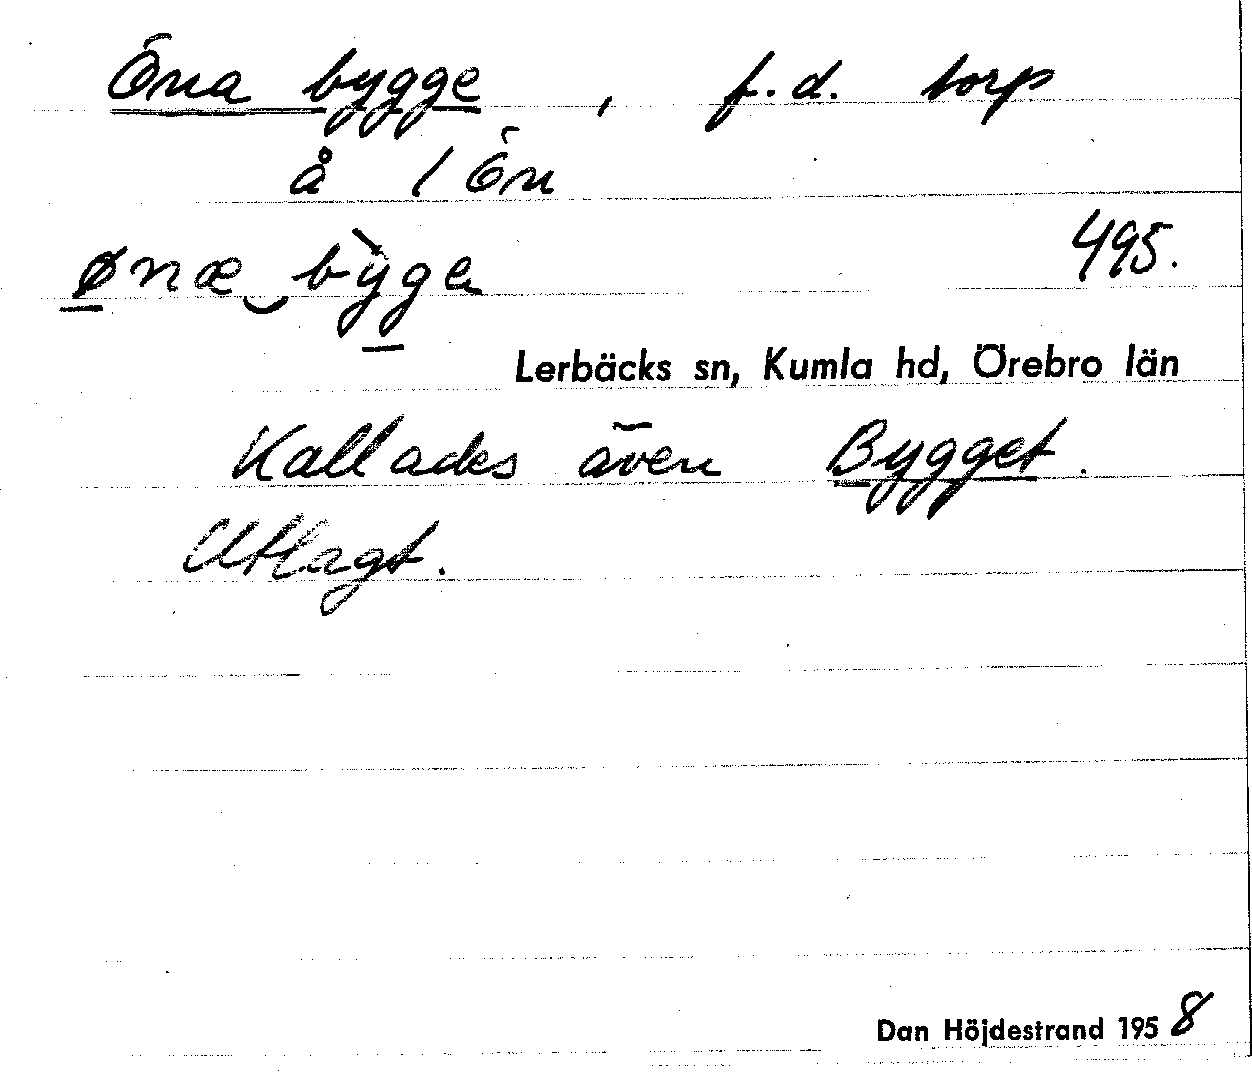 Öna bygge, f.d. torp
å 1 Ön
ønæ bỳga
495.
Lerbäcks sn, Kumla hd, Örebro län
Kallades även Bygget.
Utlagt.
Dan Höjdestrand 1958